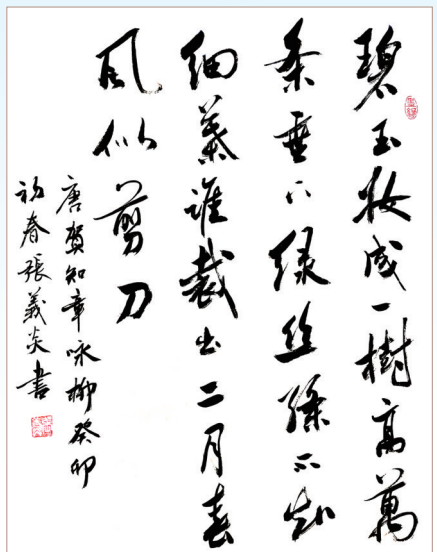 碧玉妆成一樹高萬
条垂下绿丝绦不知
细葉谁裁出二月春
风似剪刀
唐贺知章咏柳癸卯
初春張義炎書